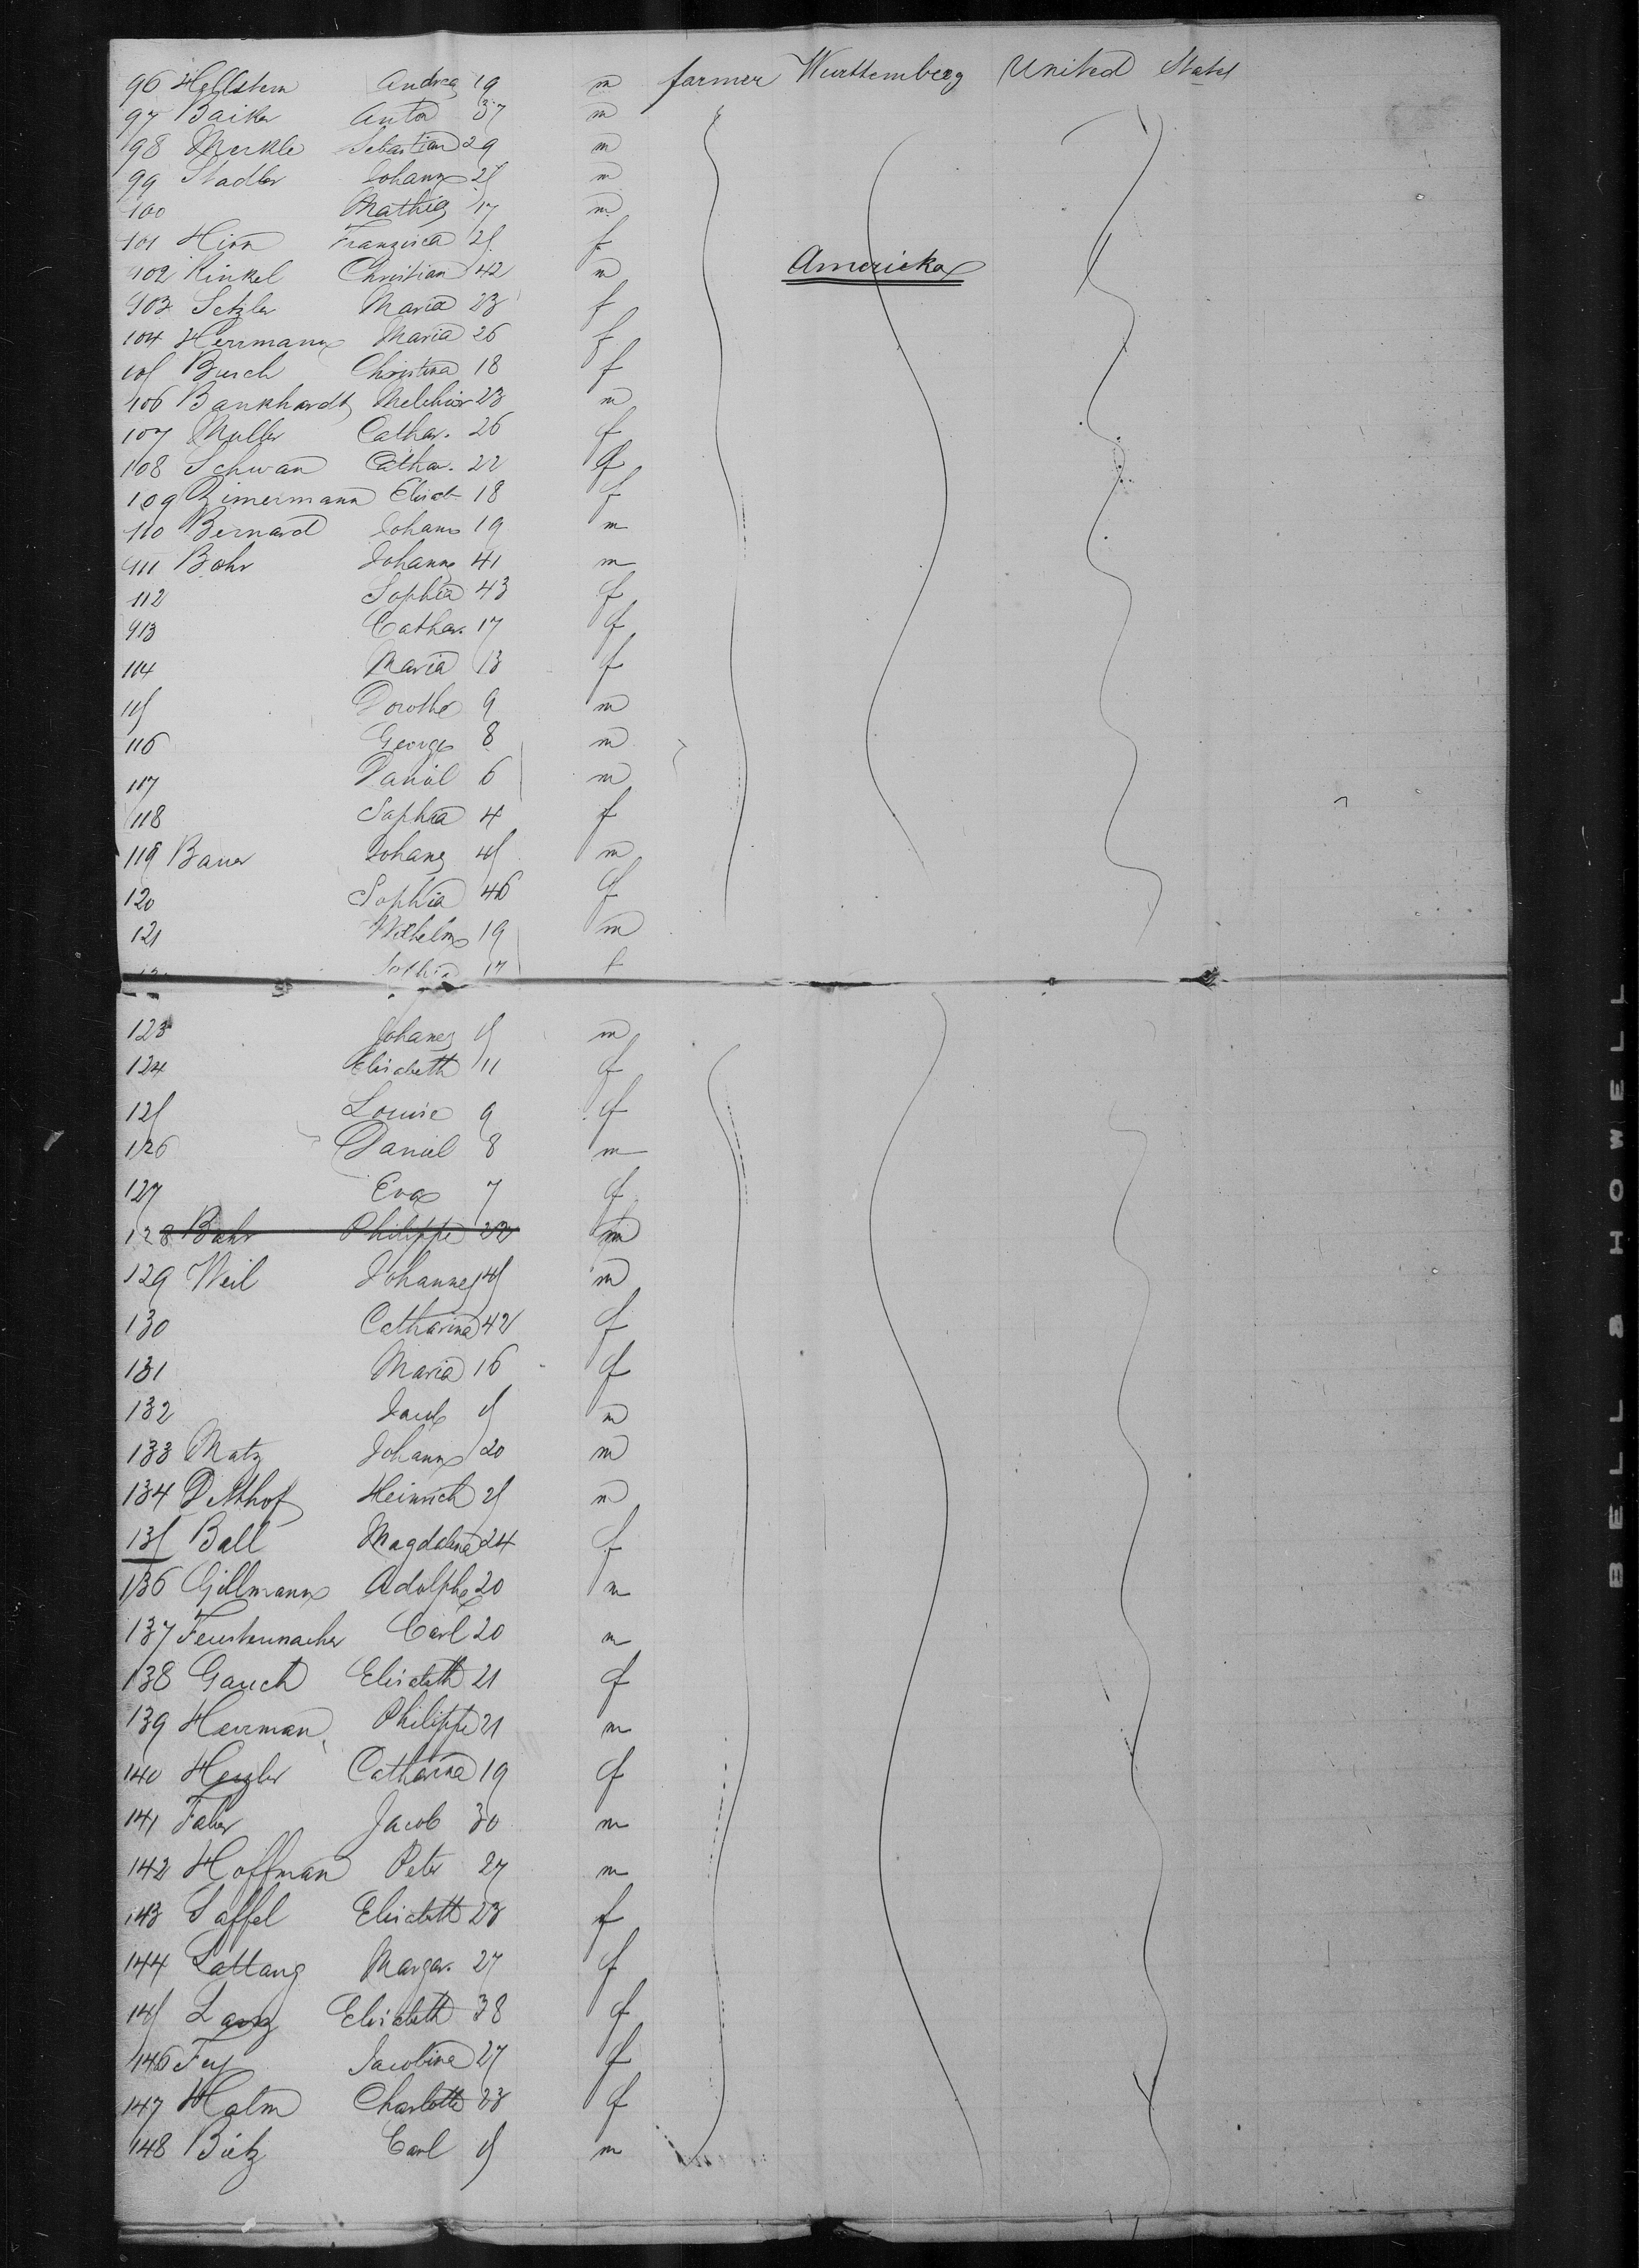 96 Hellstern Andreas 19 m farmer Wurttemberg United States
97 Baiker Anton 37 m
98 Merkle Sebastian 29 m
99 Stadler Johann 25 m
100 Mathias 17 m
101 Hirn Franzisca 25 f
102 Kinkel Christian 42 m Amerika
103 Setzler Maria 23 f
104 Herrmann Maria 26 f
105 Busch Christina 18 f
106 Bankhardt Melchior 23 m
107 Muller Cathar. 26 f
108 Schwan Cathar. 22 f
109 Zimermann Elisab 18 f
110 Bernard Johann 19 m
111 Bohr Johann 41 m
112 Sophia 43 f
113 Cathar. 17 f
114 Maria 13 f
115 Dorothe 9 m
116 George 8 m
117 Daniel 6 m
118 Sophia 4 f
119 Bauer Johanes 45 m
120 Sophia 46 f
121 Wilhelm 19 m
17 f
123 Johanes 15 m
124 Elisabeth 11 f
125 Louise 9 f
126 Daniel 8 m
127 Eva 7 f
128 Bohr Philippe 22 m
129 Weil Johannes 45 m
130 Catharina 42 f
131 Maria 16 f
132 Jacob 15 m
133 Matz Johann 20 m
134 Heinrich 25 m
135 Ball Magdalena 24 f
136 Gillmann Adolphe 20 m
137 Carl 20 m
138 Gauch Elisabeth 21 f
139 Herrman Philippe 21 m
140 Catharina 19 f
141 Faber Jacob 30 m
142 Hoffman Peter 27 m
143 Saffel Elisabeth 23 f
144 Lattang Margar. 27 f
145 Lang Elisabeth 38 f
146 Fey Jacobine 27 f
147 Halm Charlotte 23 f
148 Bietz Carl 15 m
BELL & HOWELL